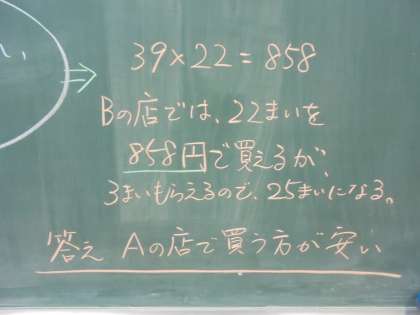 い、
39×22=858
Bの店では、22まいを
858円で買えるが、
3まいもらえるので、25まいになる。
答え Aの店で買う方が安い